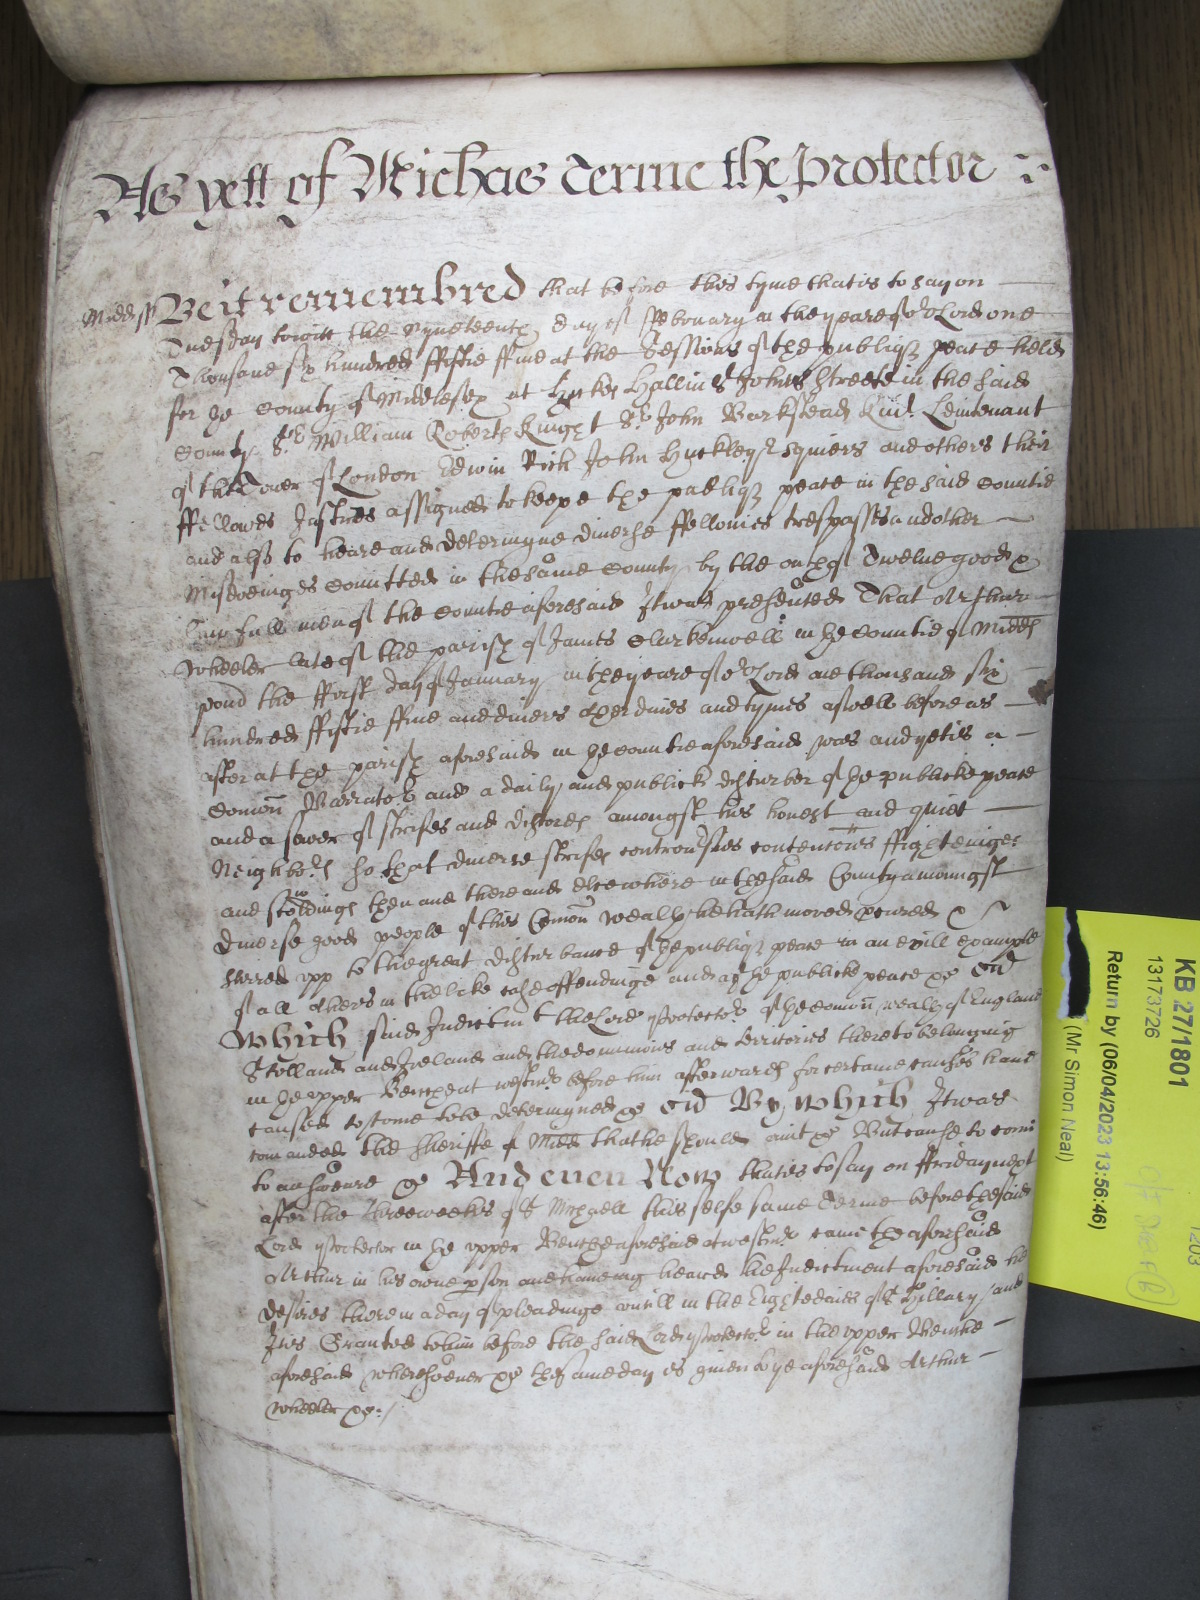 As yett of Michas Terme the Protector
Midds Be it remembred that before this tyme that is to say on
Tuesday to witt the Nyneteenth day of ffebruary in the yeare of or Lord one
Thousand six hundred ffiftie ffive at the Sessions of the publiq peace held
for the County of Middlesex at Hickes Hall in St Johns Streete in the said
County Sr William Roberts Knight Sr John Barkstead Knt Leiutenant
of the Tower of London Edwin Rich John Huckley Esquiers and others their
ffellowes Justices assigned to keepe the publiq peace in the said Countie
and also to heare and determyne diverse ffellonies trespasses and other
Misdoeinges comitted in the same County by the oath of Twelve good &
lawfull men of the Countie aforesaid It was presented That Arthur
Wheeler late of the parish of James Clarkenwell in the Countie of Midds
the ffirst day of January in the yeare of or Lord one thousand six
hundred ffiftie ffive and divers other daies and tymes aswell before as
after at the parish aforesaid in the Countie aforesaid was and yet is a
Comon Barrator and a daily and publick disturber of the publicke peace
and a sower of strifes and discords amongst his honest and quiet
Neighbors so that diverse strifes controversies contentions ffighteinges
and scoldings then and there and elsewhere in the said County amoungst
diverse good people of this Comon wealth he hath moved procured &
stirred upp to the great disturbance of the publiq peace in an evill example
of all others in the like case offendinge and agt the publicke peace &c
Which said Indictmt the Lord Protector of the Comon wealth of England
Scotland and Ireland and the dominions and territories thereto belonging
in the upper Bench at westmr before him afterwards for certaine causes hath
caused to come to be determyned &c By which It was
comanded the Sheriffe of Midds that he should not &c But cause to come
to answeare &c And even Now that is to say on ffriday next
after three weekes of St Michaell this selfe same Terme before the said
Lord Protector in the upper Bench aforesaid at westmr came the aforesaid
Arthur in his owne pson and haveing heard the Indictment aforesaid he
desires therein a day of pleadinge untill in the Eight daies of St Hillary and
It is Granted to him before the said Lord Protector in the upper Bench
aforesaid wheresoever &c the same day is given to ye aforesaid Arthur
Wheeler &c
KB 27/1801
13173726
Return by (06/04/2023 13:56:46)
(Mr Simon Neal)